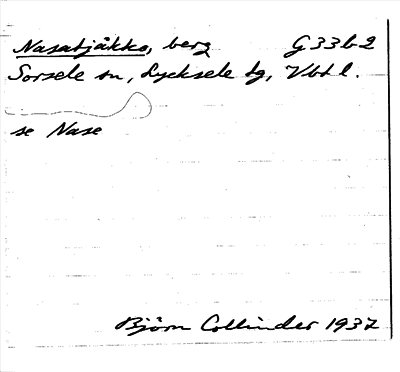 Nasatjåkko, berg G33b2
Sorsele sn, Lycksele tg, Vbtl.
se Nase
Björn Collinder 1937